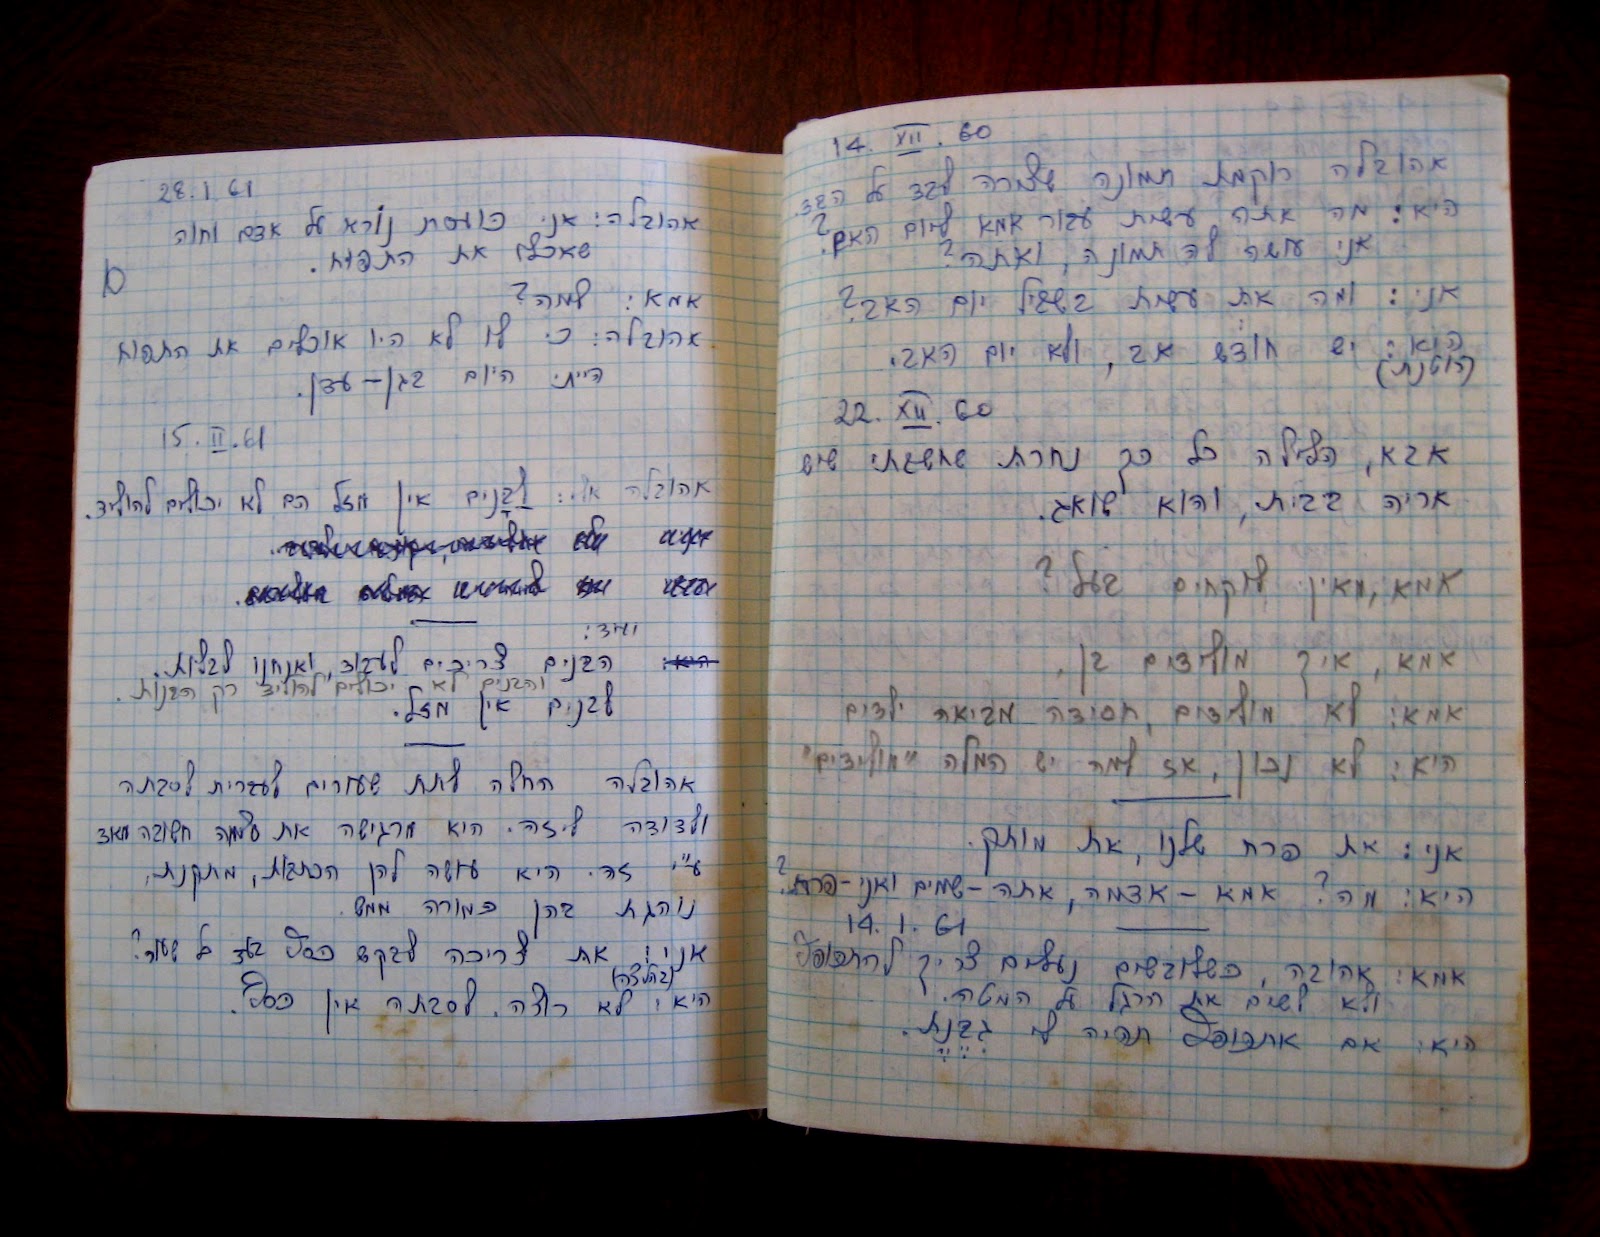 14. XII. 60
אהובלה רוקמת תמונה שצורה לבד על הבד.
היא: מה אתה עשית עבור אמא ליום האם?
אני עושה לה תמונה, ואתה?
אני: ומה את עשית בשביל יום האב?
היא: יש חודש אב, ולא יום האב.
22. XII. 60
אבא, הלילה כל כך נחרת שחשבתי שיש
אריה בבית, והוא שואג.
אמא, מאין לוקחים בעל?
אמא, איך מולידים בן.
אמא: לא מולידים, חסידה מביאה ילדים
היא: לא נכון, אז למה יש המלה "מולידים"
אני: את פרח שלנו, את מותק.
היא: מה? אמא - אדמה, אתה - שמים ואני - פרח?
14. 1. 61
אמא: אהובה, כשלובשים נעלים צריך להתכופף
ולא לשים את הרגל על המטה.
היא: אם אתכופף תהיה לי גבנת.
28. 1 61
אהובלה: אני כועסת נורא על אדם וחוה
שאכלו את התפוח.
אמא: למה?
אהובלה: כי לו לא היו אוכלים את התפוח
הייתי היום בגן-עדן.
15. II. 61
אהובלה: לבנים אין מזל הם לא יכולים להוליד.
ועוד:
היא: הבנים צריכים לעבוד, ואנחנו לבלות.
והבנים לא יכולים להוליד רק הבנות.
לבנים אין מזל.
אהובלה החלה לתת שעורים לעברית לסבתה
ולדודה ליזה. היא מרגישה את עצמה חשובה מאד
ע"י זה. היא עושה להן הכתבות, מתקנת,
נוהגת בהן כמורה ממש.
אני: את צריכה לבקש כסף בעד כל שעור?
היא: לא רוצה. לסבתה אין כסף.